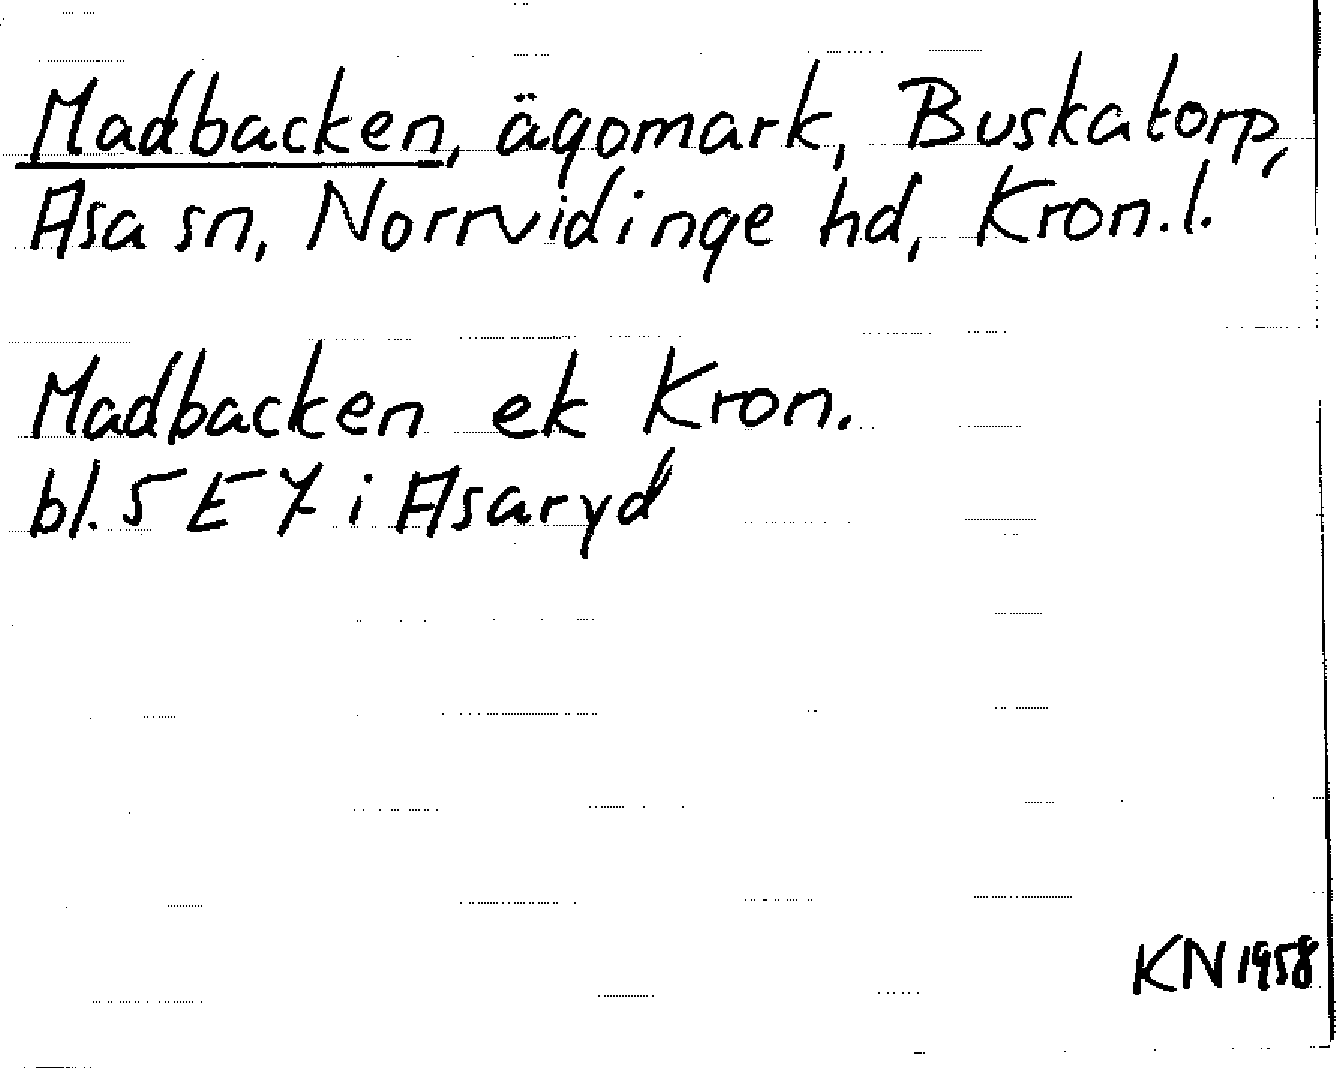 Madbacken, ägomark, Buskatorp,
Asa sn, Norrvidinge hd, Kron.l.
Madbacken ek Kron.
bl. 5 E 7 i Asaryd
KN 1958